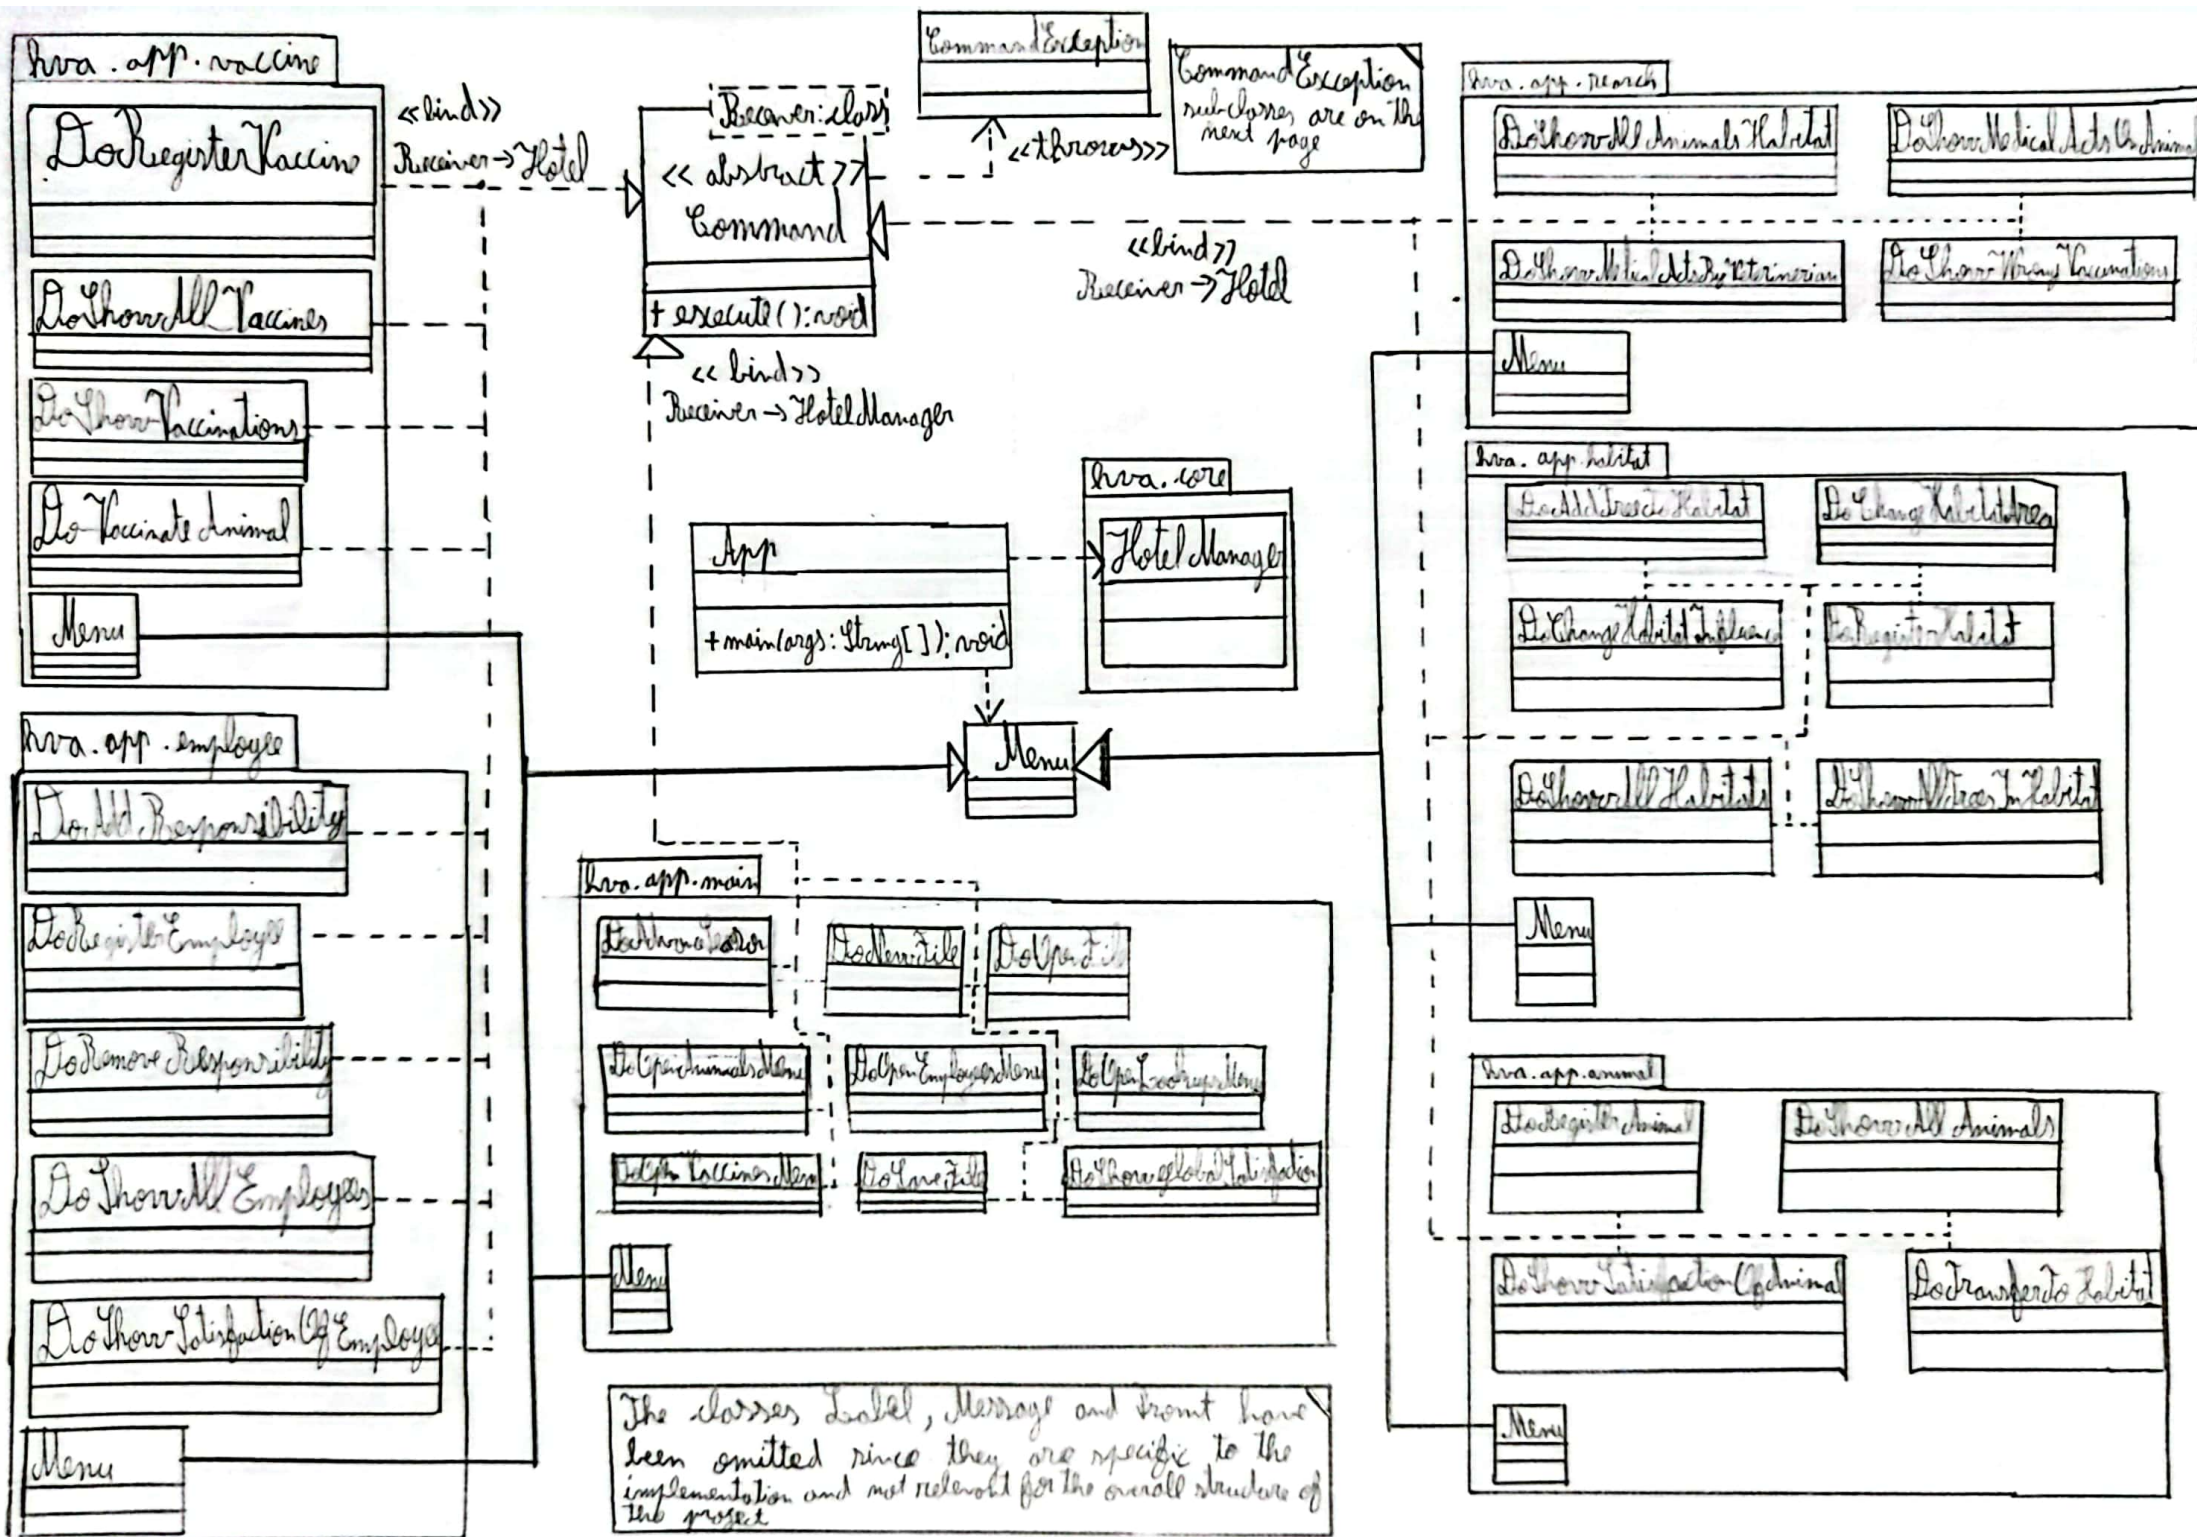 hva.app.vaccine
DoRegisterVaccine
DoShowAllVaccines
DoShowVaccinations
DoVaccinateAnimal
Menu
<<bind>>
Receiver→Hotel
Receiver:class
<<abstract>>
Command
+ execute():void
CommandException
<<throws>>
CommandException
subclasses are on the
next page
<<bind>>
Receiver→Hotel
<<bind>>
Receiver→HotelManager
hva.app.search
DoShowAllAnimalsHabitat
DoShowMedicalActsOnAnimal
DoShowMedicalActsByVeterinerian
DoShowWrongVaccinations
Menu
hva.core
HotelManager
App
+main(args:String[]):void
Menu
hva.app.habitat
DoAddTreeToHabitat
DoChangeHabitatArea
DoChangeHabitatInfluence
DoRegisterHabitat
DoShowAllHabitats
DoShowAllTreesInHabitat
Menu
hva.app.employee
DoAddResponsibility
DoRegisterEmployee
DoRemoveResponsibility
DoShowAllEmployees
DoShowSatisfactionOfEmployee
Menu
hva.app.main
DoNewFile
DoOpenFile
DoOpenAnimalsMenu
DoOpenEmployeesMenu
DoOpenLookupsMenu
DoOpenVaccinesMenu
DoSaveFile
DoShowGlobalSatisfaction
Menu
hva.app.animal
DoRegisterAnimal
DoShowAllAnimals
DoShowSatisfactionOfAnimal
DoTransferToHabitat
Menu
The classes Label, Message and Promt have
been omitted since they are specific to the
implementation and not relevant for the overall structure of
the project